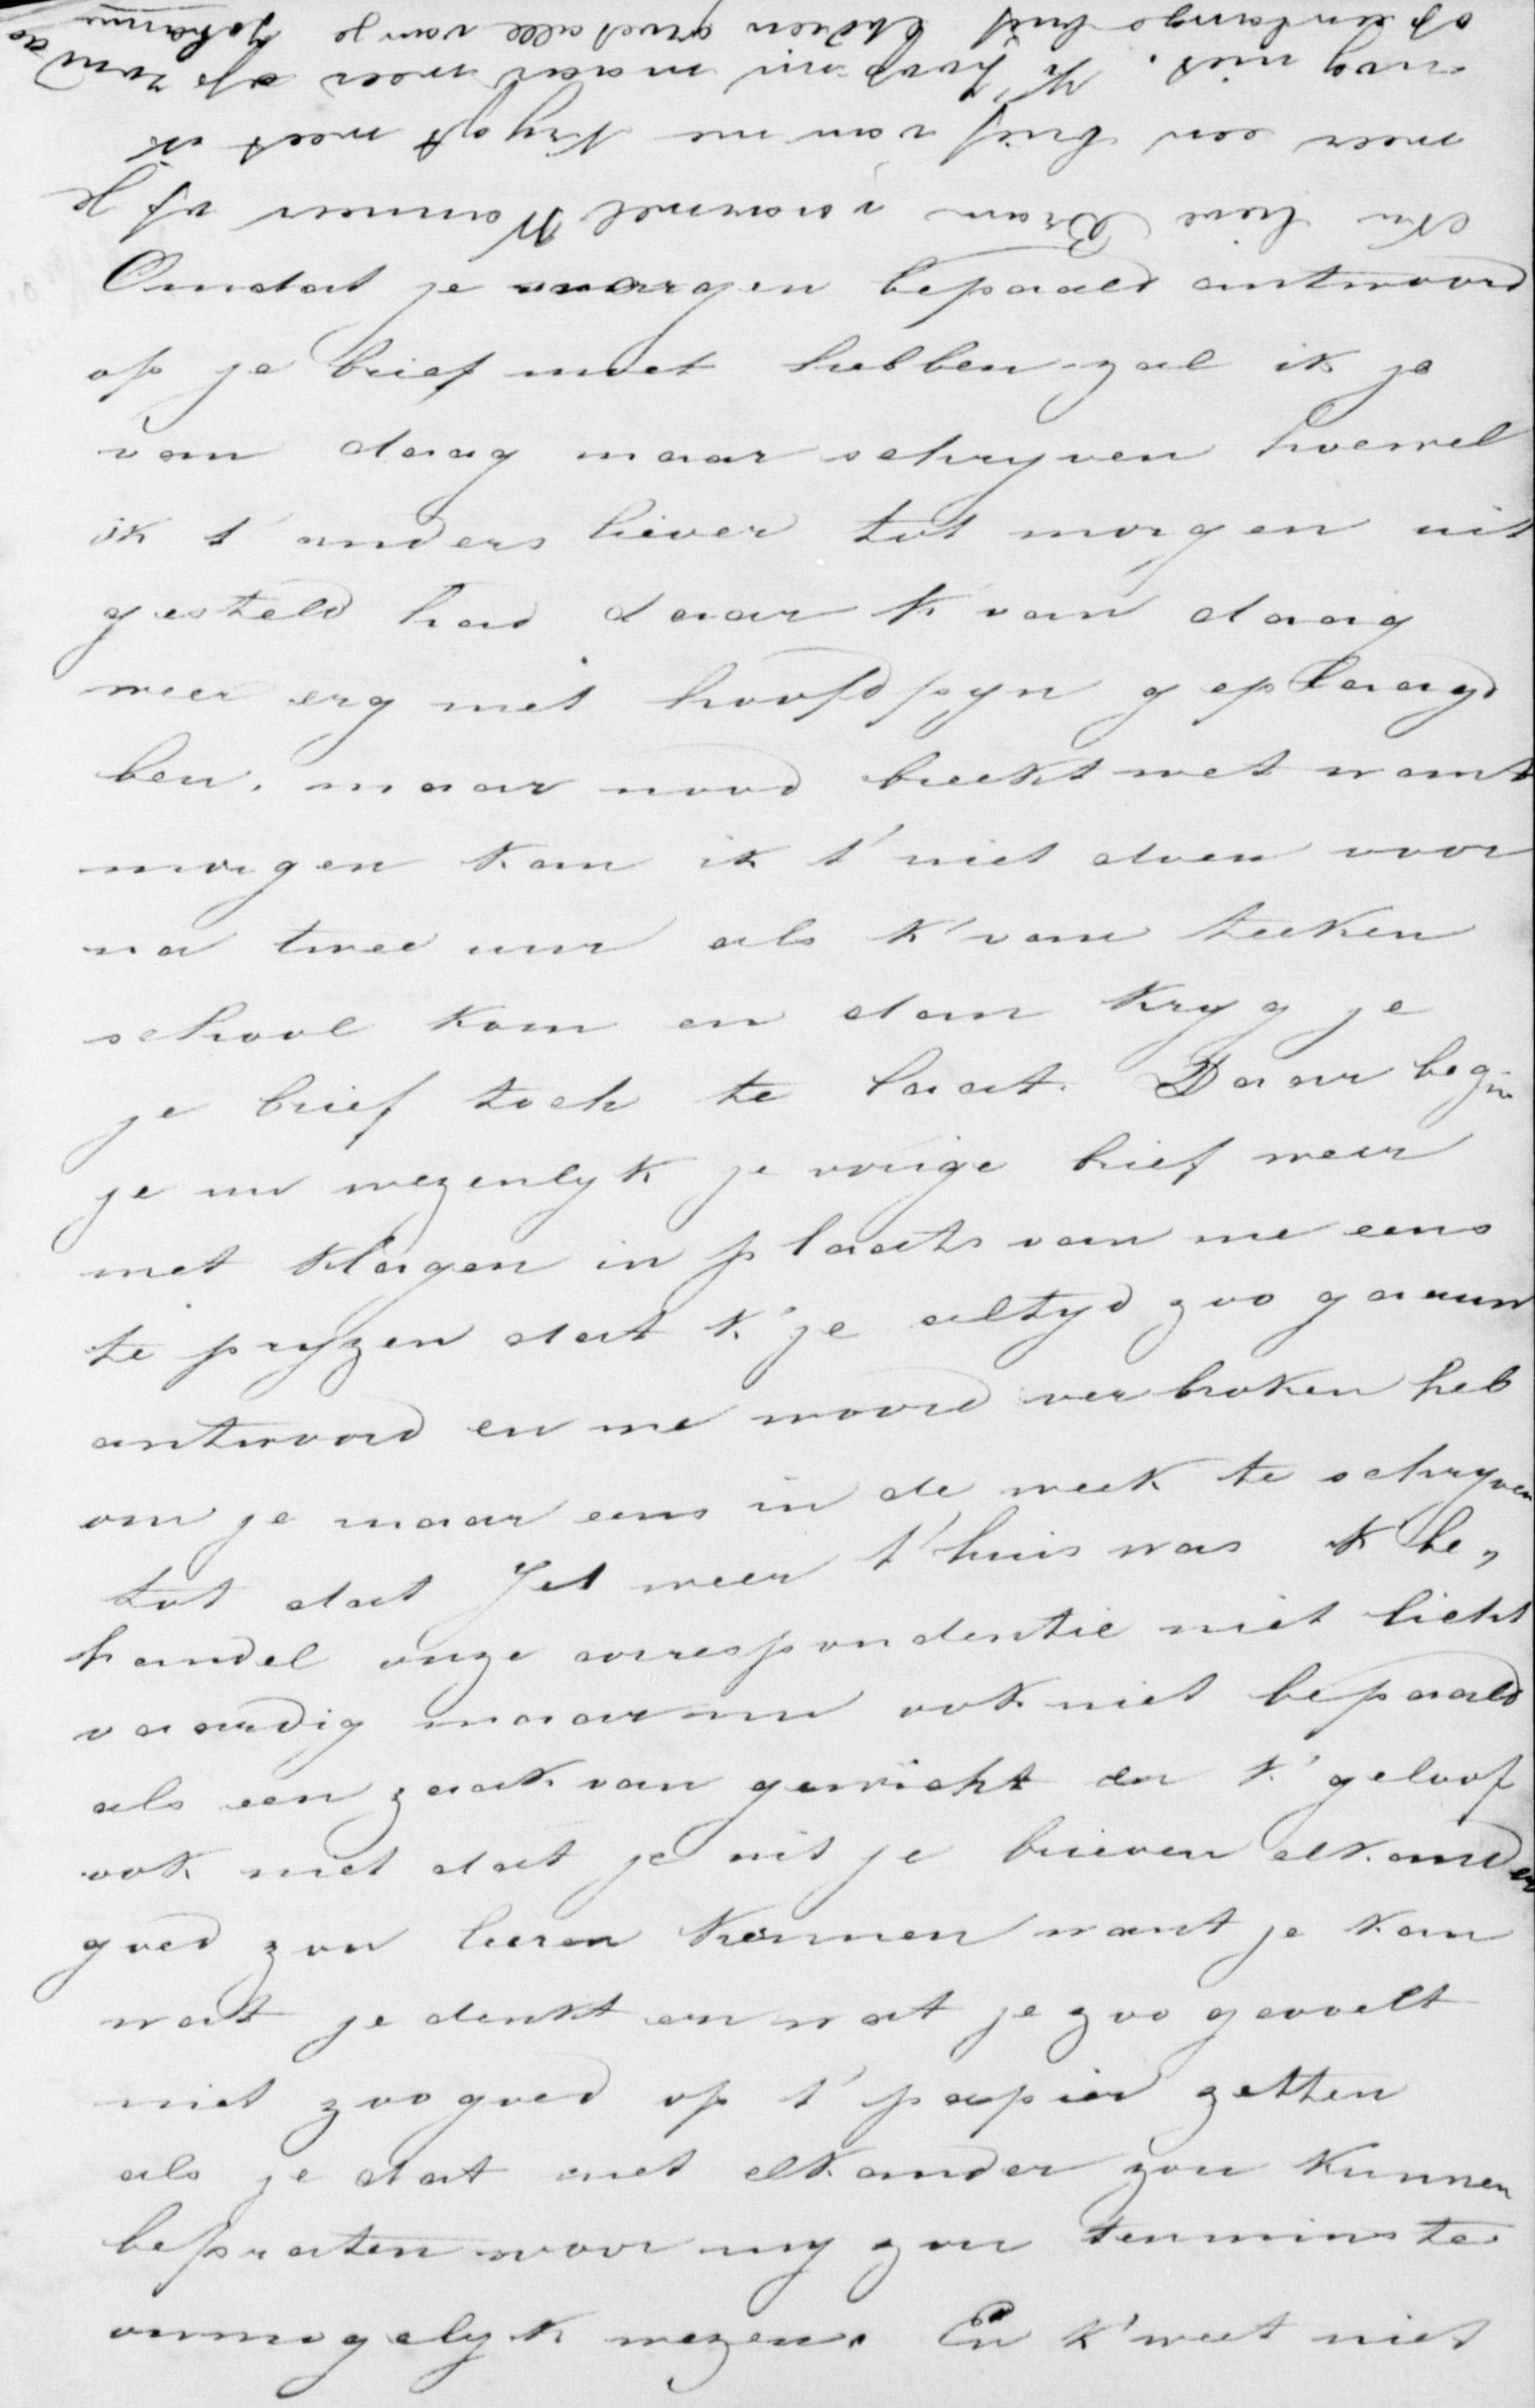 Omdat je morgen bepaald antwoord
op je brief moet hebben zal ik je
van daag maar schryven hoewel
ik t anders liever tot morgen uit
gesteld had daar k van daag
weer erg met hoofdpyn geplaagd
ben, maar nood breekt wet want
morgen kan ik t' niet doen voor
na twee uur als k' van teeken
school kom en dan kryg je
je brief toch te laat. Daar begin
je nu wezenlyk je vorige brief weer
met klagen in plaats van me eens
te pryzen dat k' je altyd zoo gauw
antwoord en me woord verbroken heb
om je maar eens in de week te schryven
tot dat Jet weer t'huis was k be„
handel onze correspondentie niet licht
vaardig maar nu ook niet bepaald
als een zaak van gewicht en k' geloof
ook niet dat je uit je brieven elkander
goed zou leeren kennen want je kan
wat je denkt en wat je zoo gevoelt
niet zoo goed op t' papier zetten
als je dat met elkander zou kunnen
bepraten voor my zou tenminste
onmogelyk wezen. En k' weet niet
Nu lieve Bram vaarwel Wanneer of je
weer een brief van me krygt weet ik
nog niet. K' hoop nu maar weer op rand
op een lange brief groet alle van je Johanna